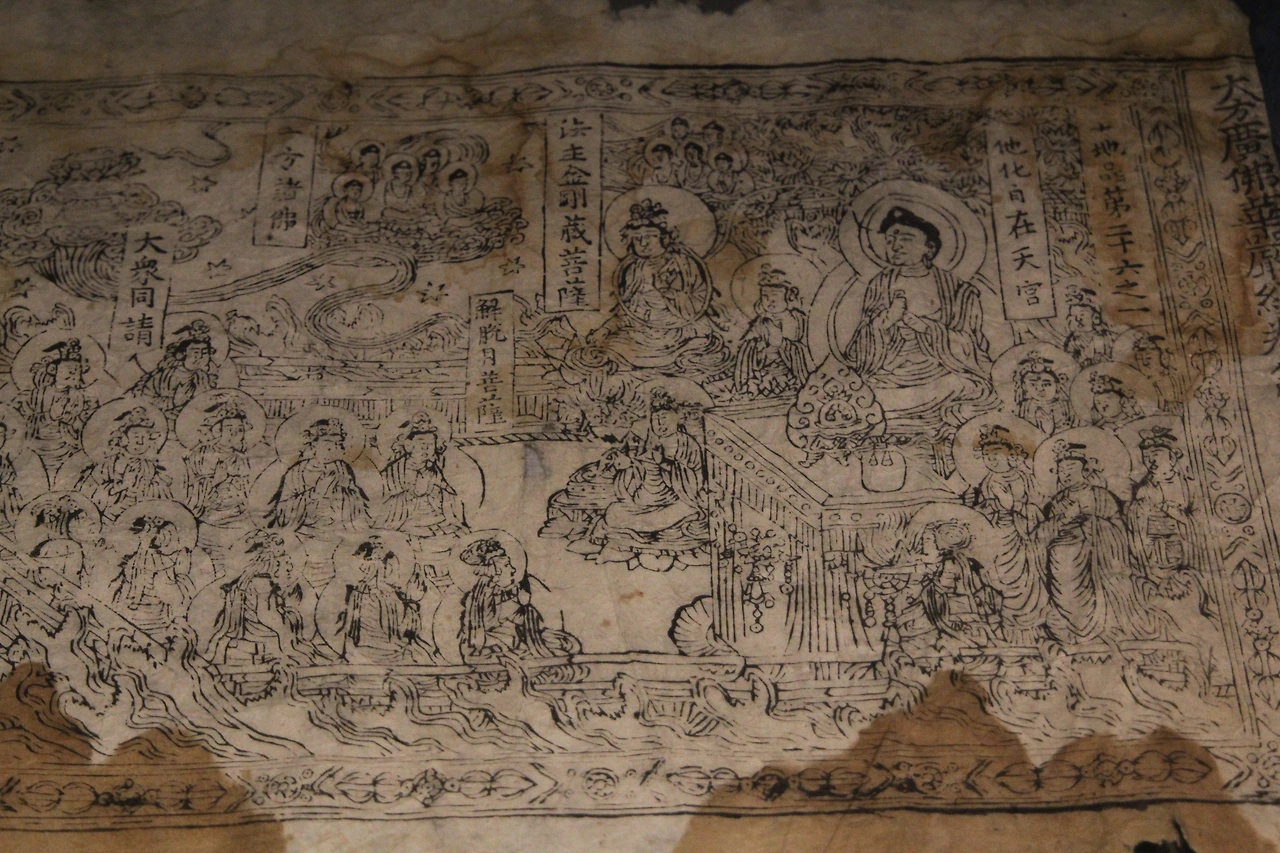 大方廣佛華嚴經
十地品第二十六之一
他化自在天宮
法主金剛蔵菩薩
解脫月菩薩
方諸佛
大衆同請